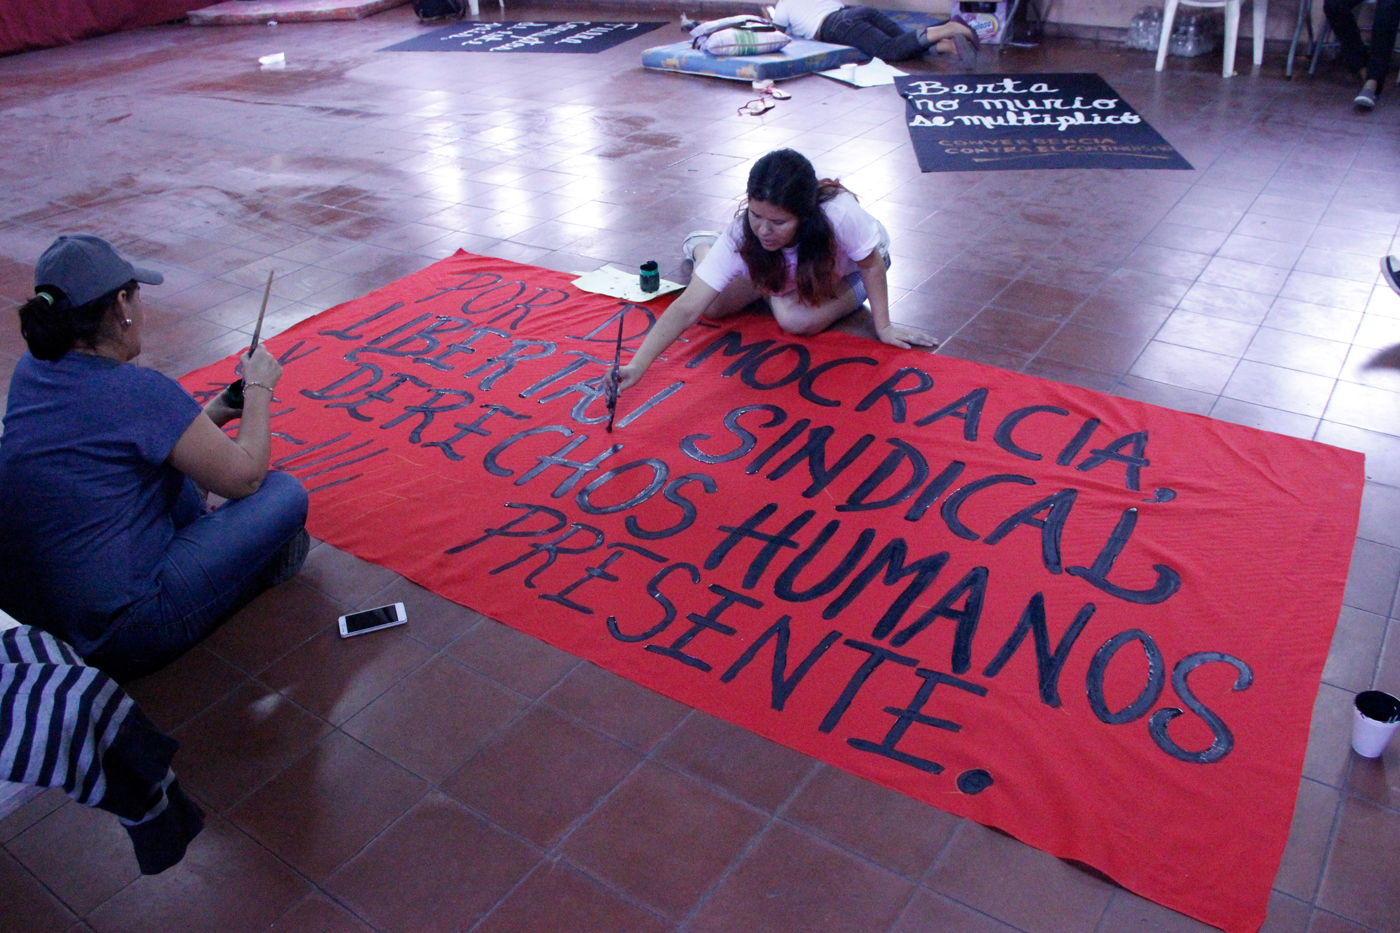 Berta
no murio
se multiplicó
CONVERGENCIA
CONTRA EL CONTINUISMO
POR DEMOCRACIA,
LIBERTAD SINDICAL
Y DERECHOS HUMANOS
PRESENTE.